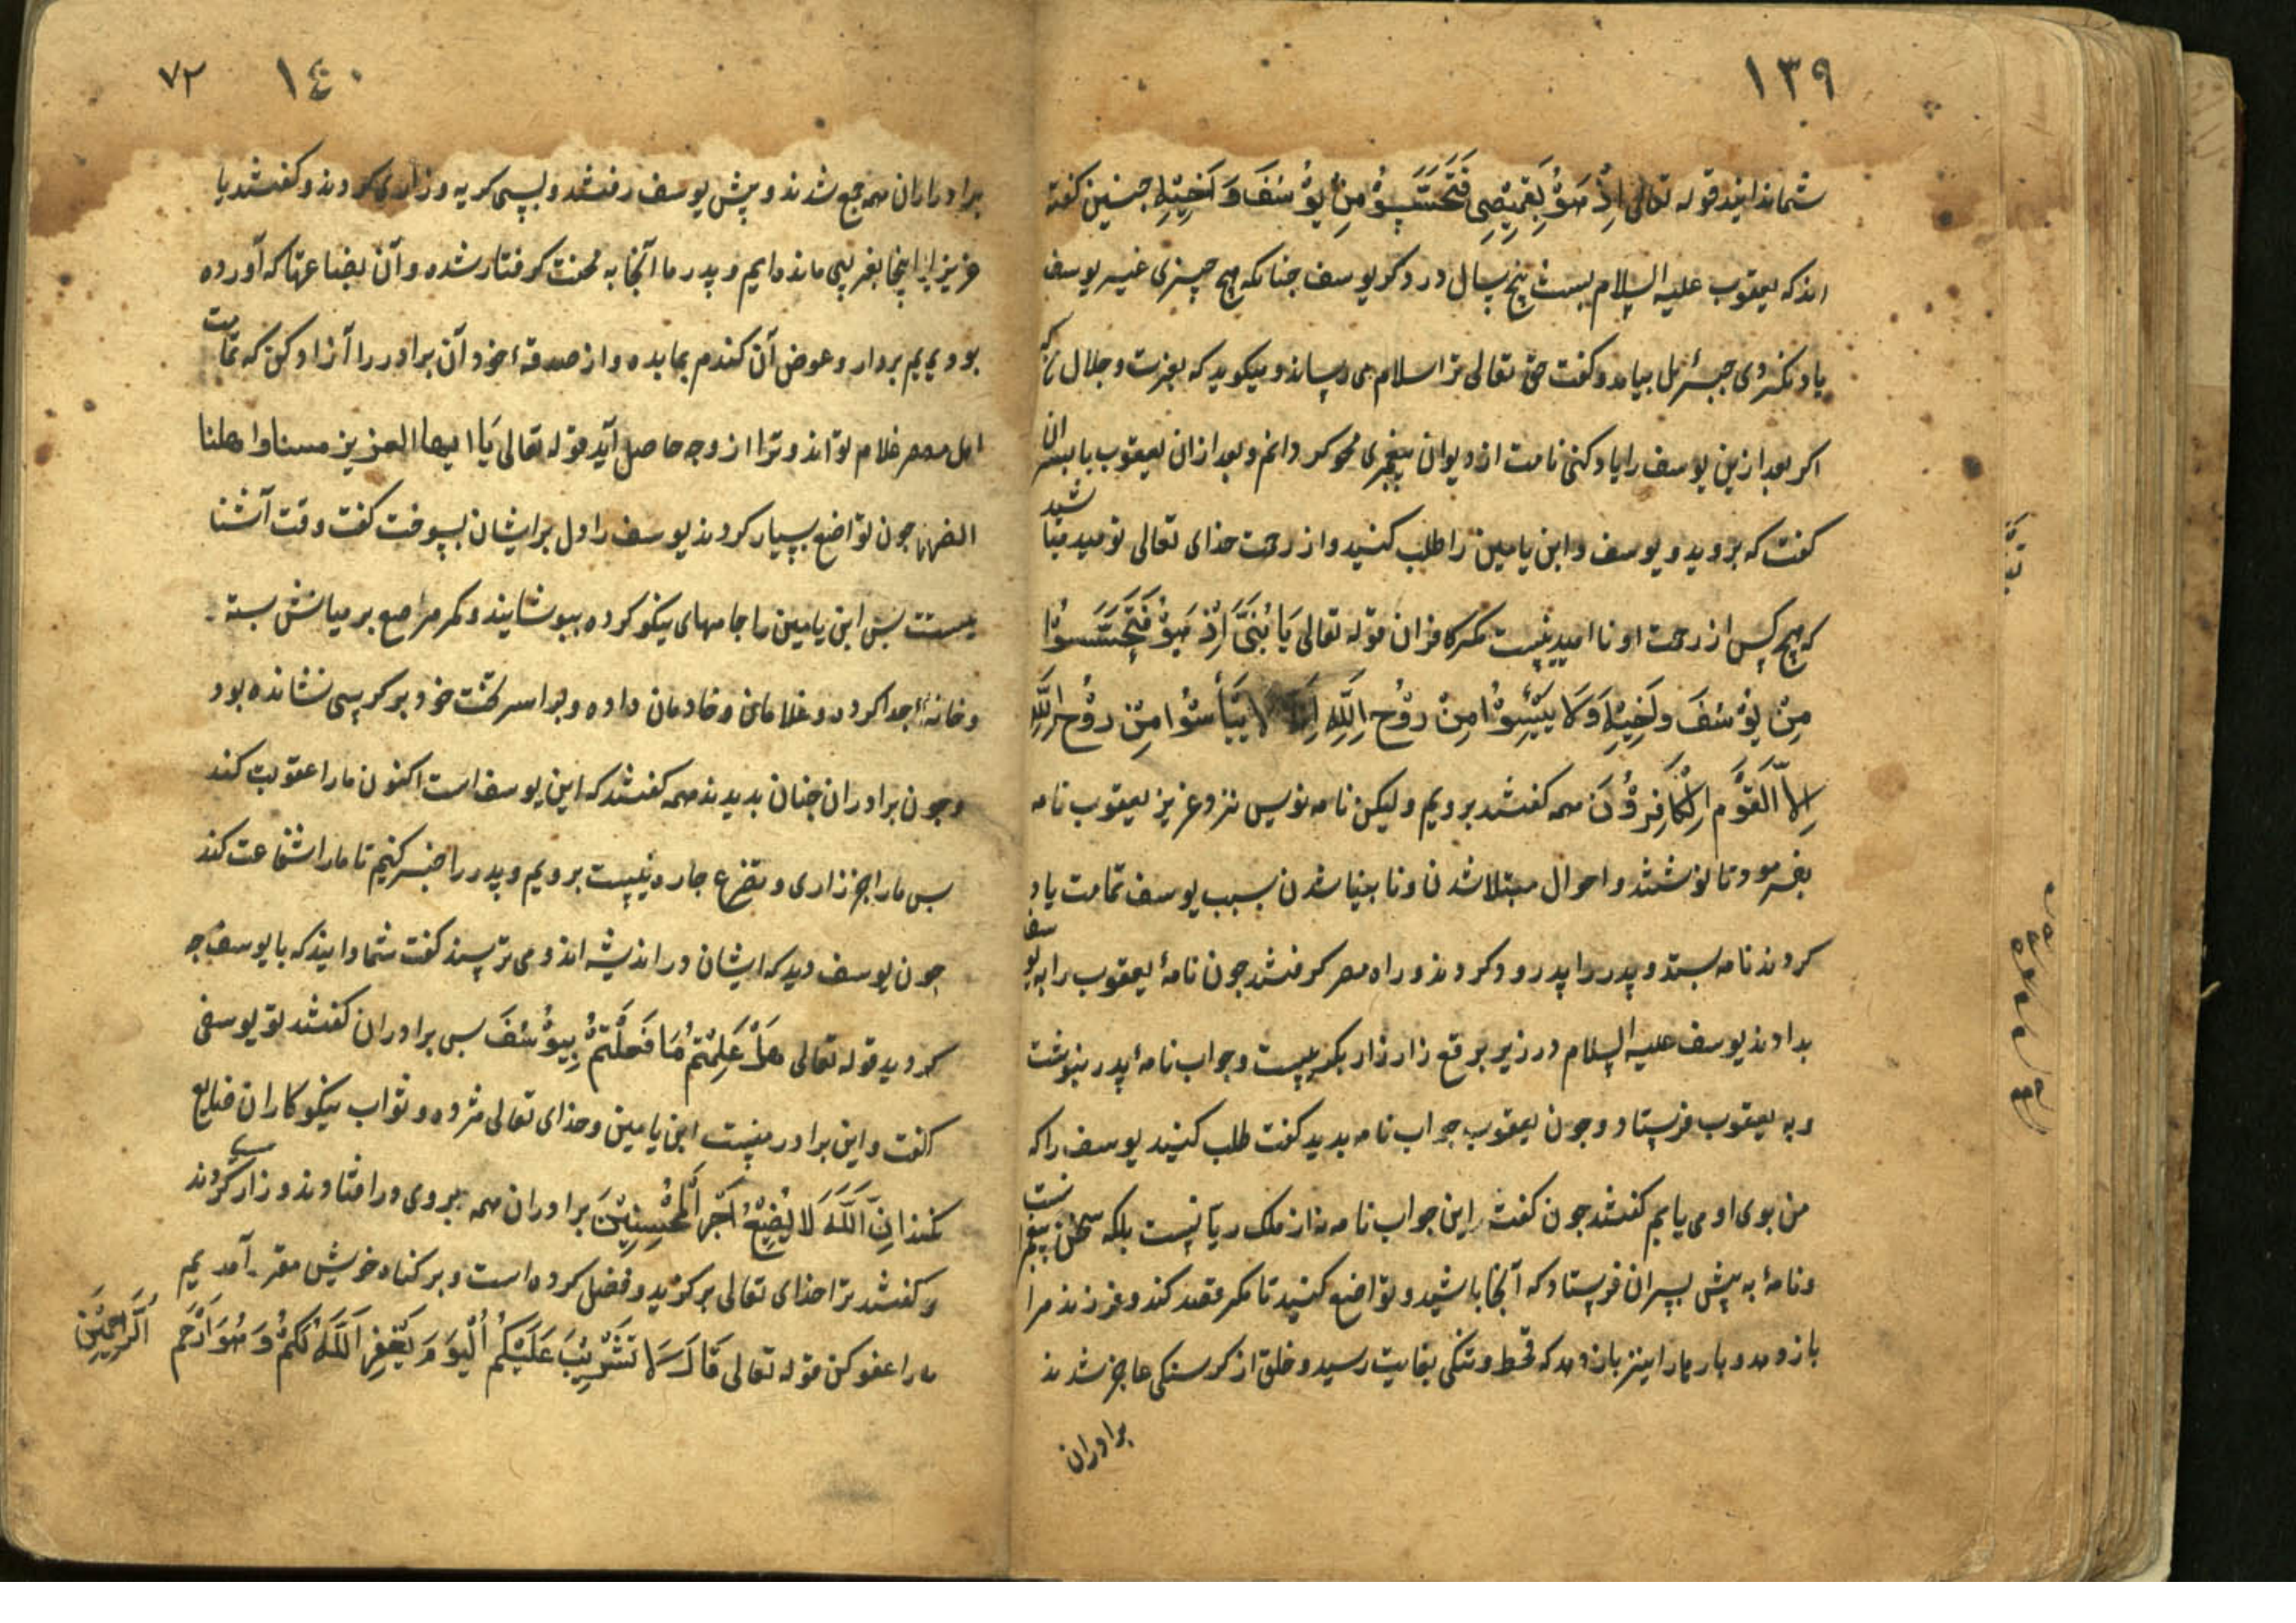 ١٣٩
شما ندانید قوله تعالی اِذْهَبُوْ بِقَمِیْصِی فَتَحَسَّسُوْ مِنْ یُوْسُفَ وَ اَخِیْهِ جنین کفته
اند که یعقوب علیه السلام بیست پنج سال در ذکر یوسف جنانکه هیچ چیزی غیر یوسف
یاد نکردی جبرئیل بیامد و کفت حق تعالی ترا سلام می رساند و میکوید که بعزت و جلال من که
اکر بعد ازین یوسف را یاد کنی نامت از دیوان پیغمبری محو کردانم و بعد ازان یعقوب با پسران
کفت که بروید و یوسف و ابن یامین را طلب کنید و از رحمت خدای تعالی نومید مباشید
که هیچ کس از رحمت او ناامید نیست مکر کافران قوله تعالی یَا بُنَیَّ اِذْهَبُوْ فَتَحَسَّسُوْا
مِنْ یُوْسُفَ وَاَخِیْهِ وَلَا یَیْئَسُوْا مِنْ رَوْحِ اللَّهِ لا یَیْأَسُوْا مِنْ رَوْحِ اللَّهِ
اِلَّا الْقَوْمَ الْکَافِرُوْنَ همه کفتند برویم ولیکن نامه نویس نزد عزیز یعقوب نامه
بفرمود تا نوشتند و احوال مبتلا شدن و نابینا شدن بسبب یوسف تمامت یاد
کردند نامه بستد و پدر را پدرود کردند و راه مصر کرفتند جون نامهٔ یعقوب را به یوسف
بدادند یوسف علیه السلام در زیر برقع زار زار بکریست و جواب نامهٔ پدر بنوشت
و به یعقوب فرستاد و جون یعقوب جواب نامه بدید کفت طلب کنید یوسف را که
من بوی او می یابم کفتند جون کفت این جواب نامه نه از ملک ریانست بلکه سخن پیغمبرانست
و نامهٔ به پیش پسران فرستاد که آنجا باشید و تواضع کنید تا مکر قصد کند و فرزند مرا
باز دهد و بار ما را نیز باز دهد که قحط و تنکی بغایت رسید و خلق از کرسنکی عاجز شدند
برادران
١٤٠
٧٢
برادران همه جمع شدند و پیش یوسف رفتند و بسی کریه و زاری کردند و کفتند یا
عزیز ما اینجا بغریبی مانده ایم و پدر ما آنجا به محنت کرفتار شده و آن بضاعتها که آورده
بودیم بردار و عوض آن کندم بما بده و از صدقهٔ خود آن برادر را آزاد کن که تمامت
اهل مصر غلام تواند و ترا از وجه حاصل آید قوله تعالی یَا ایها العزیز مسنا واهلنا
الضر جون تواضع بسیار کردند یوسف را دل بر ایشان بسوخت کفت وقت آشنا
ییست بس ابن یامین را جامهای نیکو کرده ببوشانیند و کمر مرصع بر میانش بسته
و خانهٔ جدا کرده و غلامان و خادمان داده و برابر تخت خود بر کرسی نشانده بود
و جون برادران جنان بدیدند همه کفتند که این یوسف است اکنون ما را عقوبت کند
بس ما را جز زاری و تضرع جاره نیست برویم و پدر را خبر کنیم تا ما را شفاعت کند
جون یوسف دید که ایشان در اندیشه اند و می ترسند کفت شما دانید که با یوسف جه
کردید قوله تعالی هَلْ عَلِمْتُمْ مَا فَعَلْتُمْ بِیُوْسُفَ بس برادران کفتند تو یوسفی
کفت و این برادر منست ابن یامین و خدای تعالی مزد و ثواب نیکو کاران ضایع
نکند اِنَّ اللَّهَ لَا یُضِیْعُ اَجْرَ الْمُحْسِنِیْنَ برادران همه بروی در افتادند و زاری کردند
و کفتند ترا خدای تعالی برکزید و فضل کرده است و بر کناه خویش مقر آمدیم
ما را عفو کن قوله تعالی قَالَ لَا تَثْرِیْبَ عَلَیْکُمُ الْیَوْمَ یَغْفِرُ اللَّهُ لَکُمْ وَ هُوَ اَرْحَمُ الرَّاحِمِیْنَ